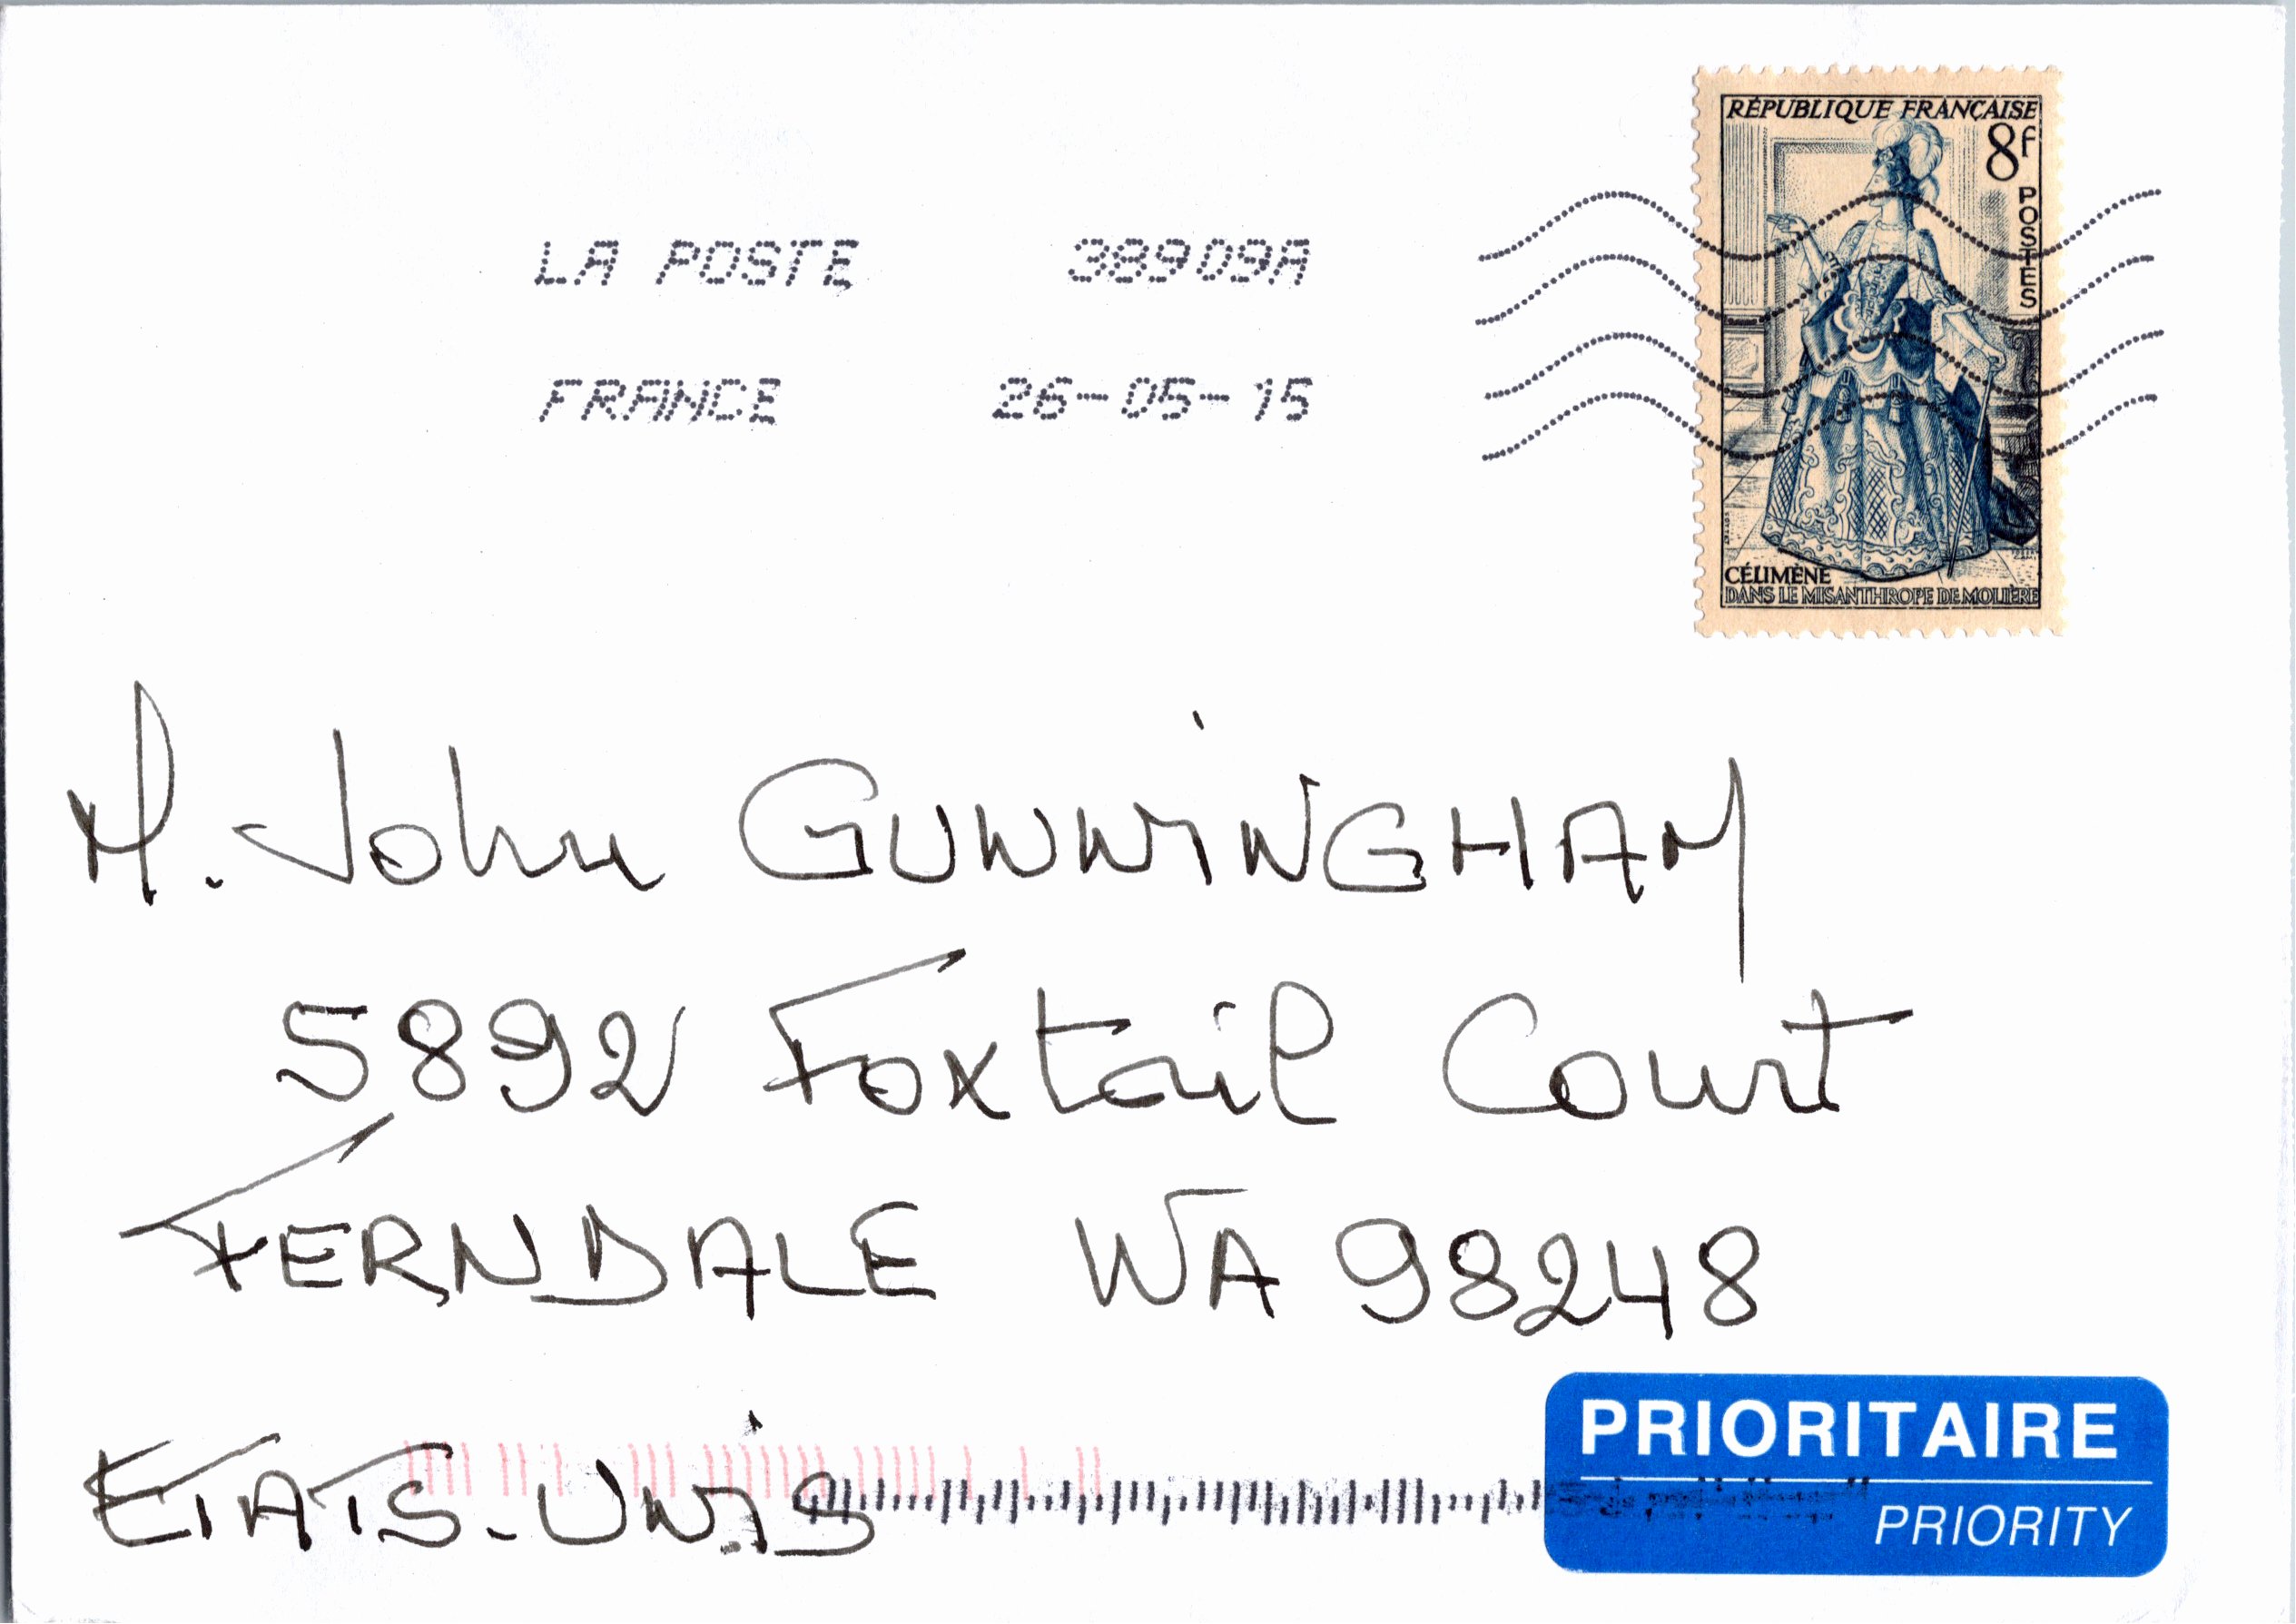 RÉPUBLIQUE FRANÇAISE
8f
POSTES
LA POSTE 38909A
FRANCE 26-05-15
CÉLIMÈNE
DANS LE MISANTHROPE DE MOLIÈRE
M. John GUNNINGHAM
5892 Foxtail Court
FERNDALE WA 98248
ETATS-UNIS
PRIORITAIRE
PRIORITY